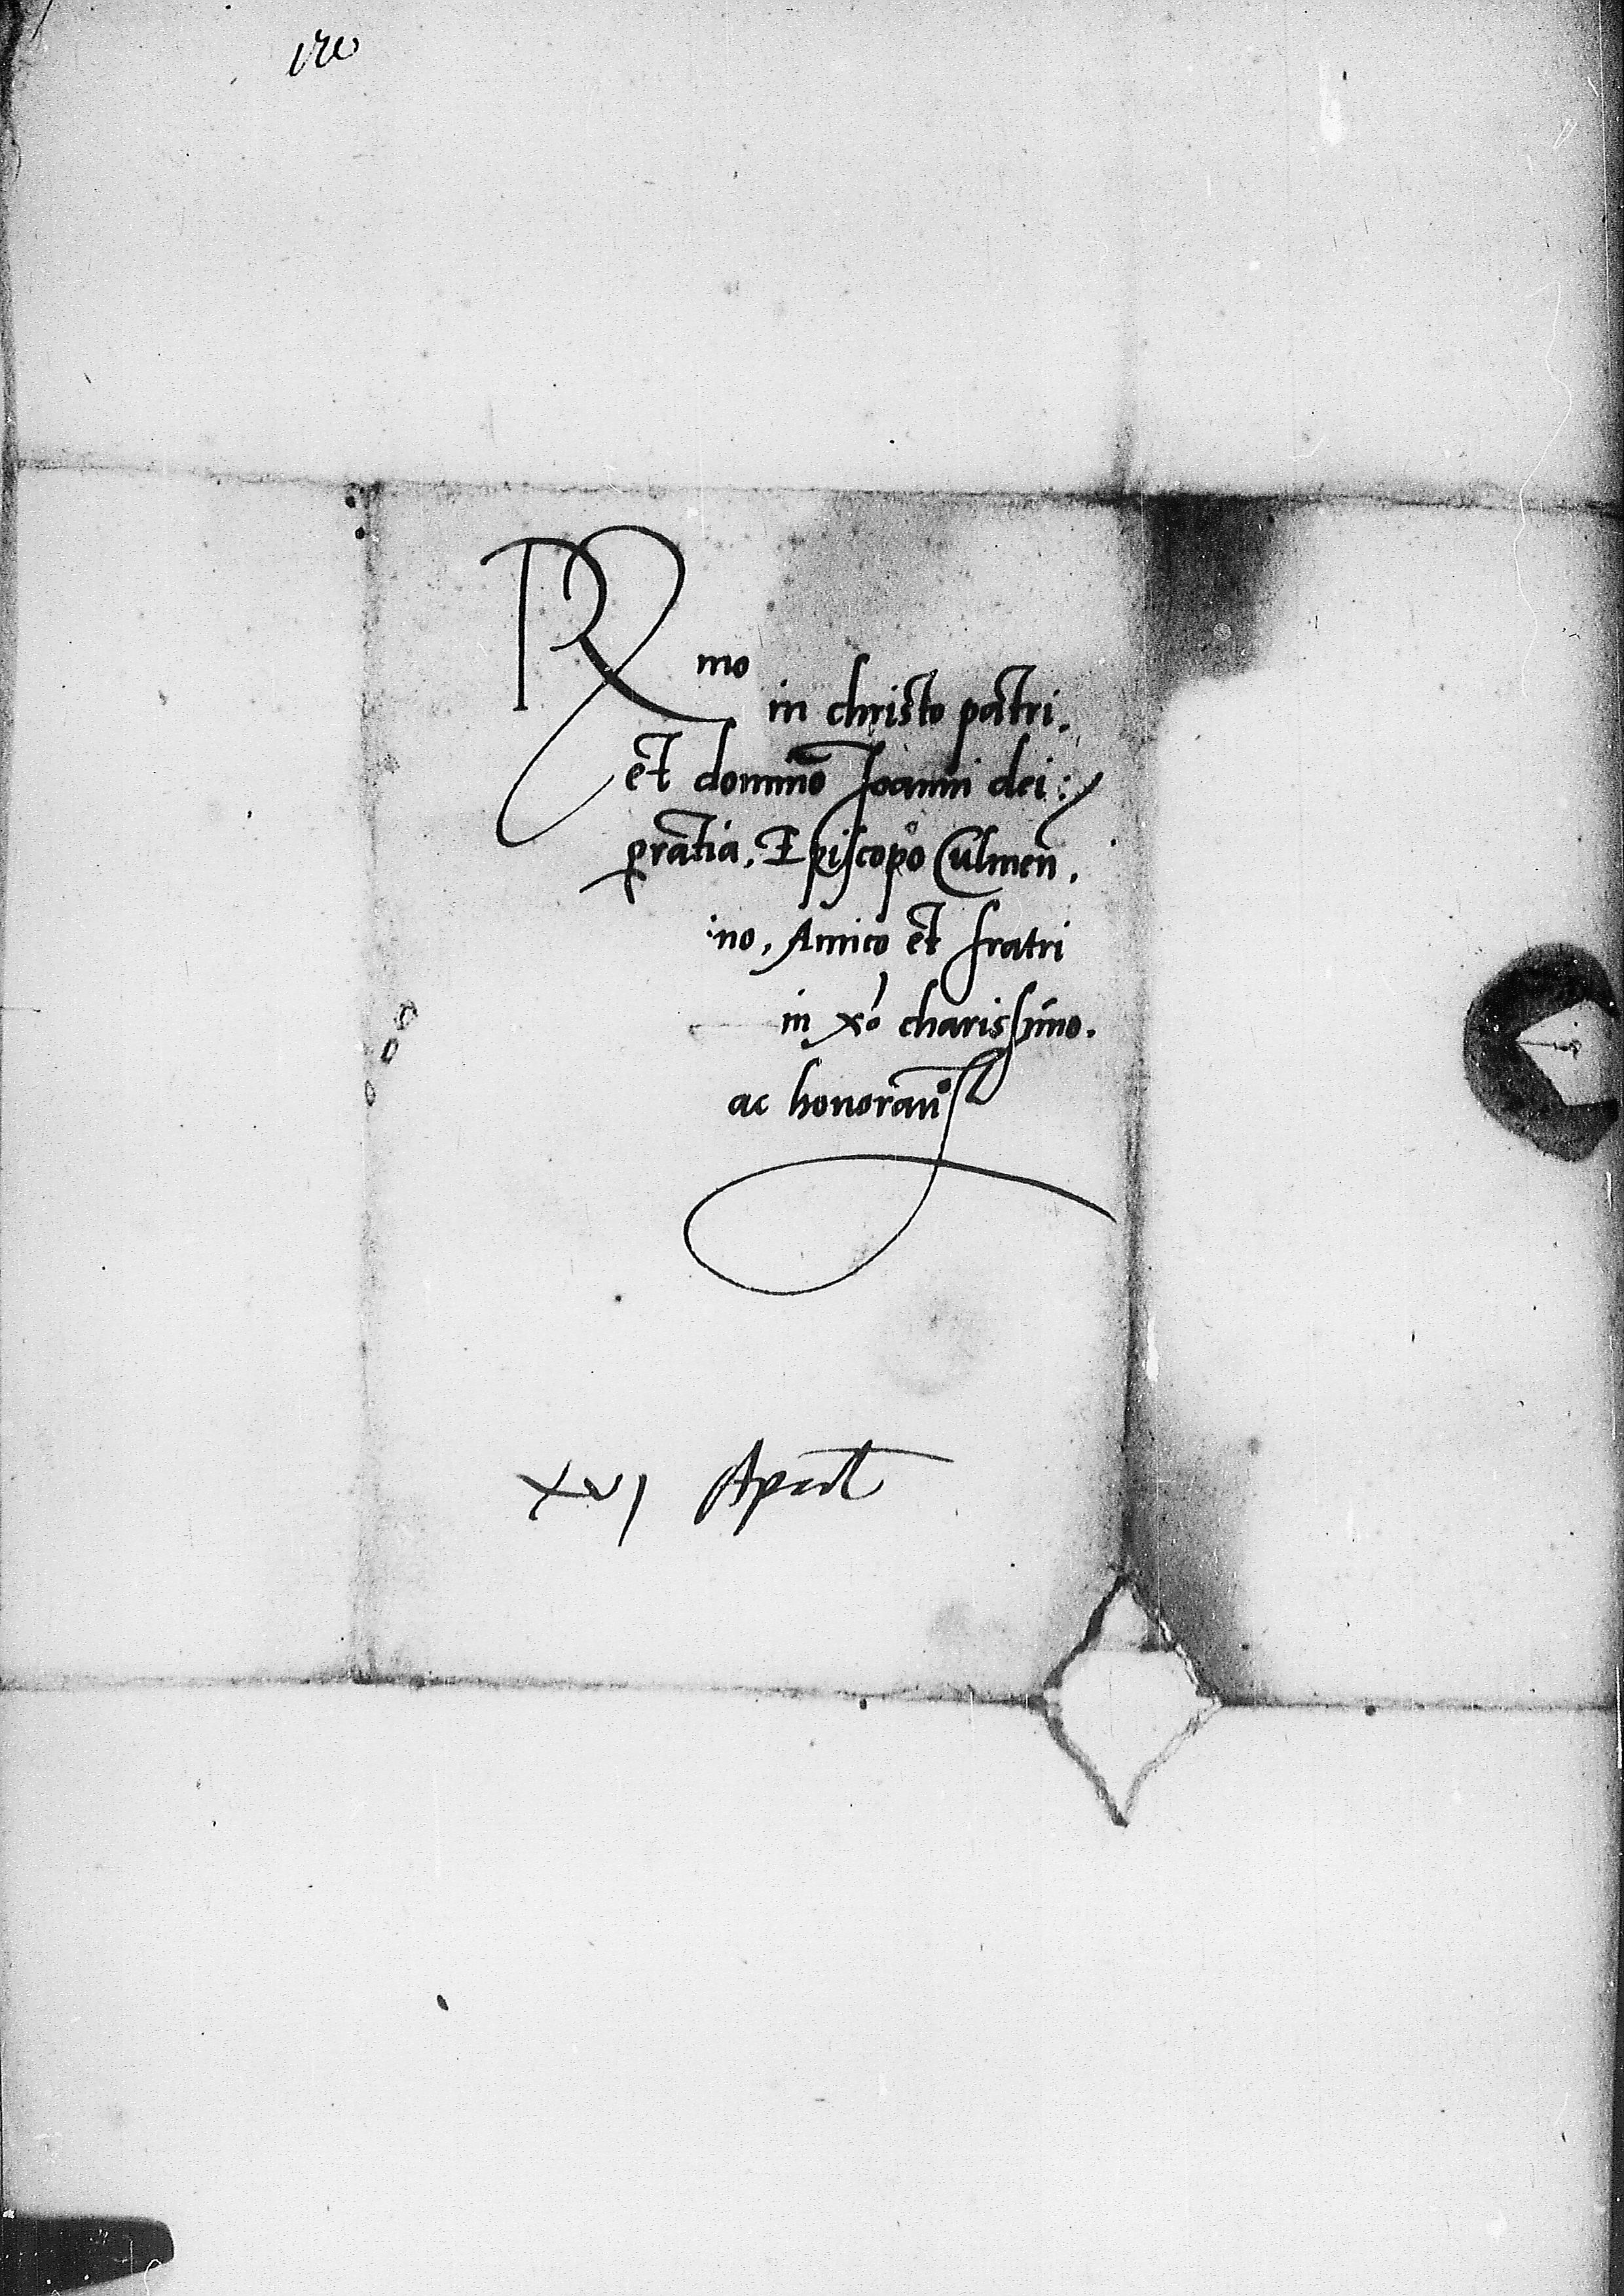 Rmo
in christo patri.
et domino Joanni dei:
gratia. Episcopo Culmen.
:no, Amico et fratri
in xo charissimo.
ac honoran
XVI April